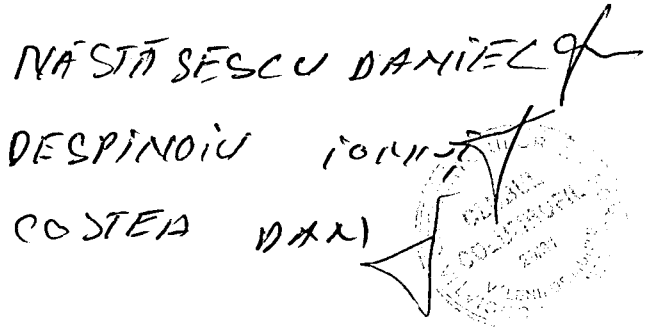 NĂSTĂSESCU DANIEL
DESPINOIU IONUȚ
COSTEA DANI